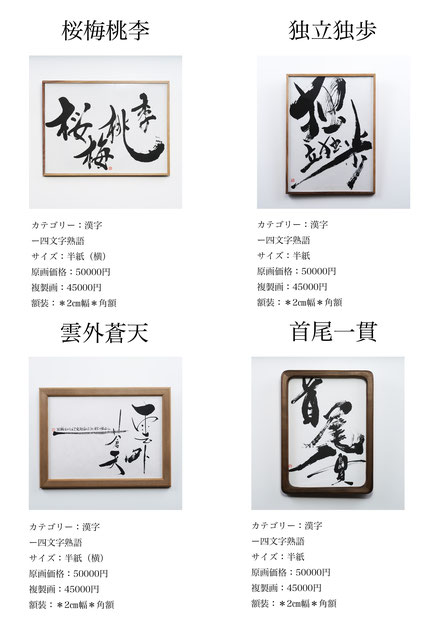 桜梅桃李
桜梅桃李
カテゴリー：漢字
ー四文字熟語
サイズ：半紙（横）
原画価格：50000円
複製画：45000円
額装：＊2㎝幅＊角額
独立独歩
独立独歩
カテゴリー：漢字
ー四文字熟語
サイズ：半紙
原画価格：50000円
複製画：45000円
額装：＊2㎝幅＊角額
雲外蒼天
雲外
蒼天
カテゴリー：漢字
ー四文字熟語
サイズ：半紙（横）
原画価格：50000円
複製画：45000円
額装：＊2㎝幅＊角額
首尾一貫
首尾一貫
カテゴリー：漢字
ー四文字熟語
サイズ：半紙
原画価格：50000円
複製画：45000円
額装：＊2㎝幅＊角額